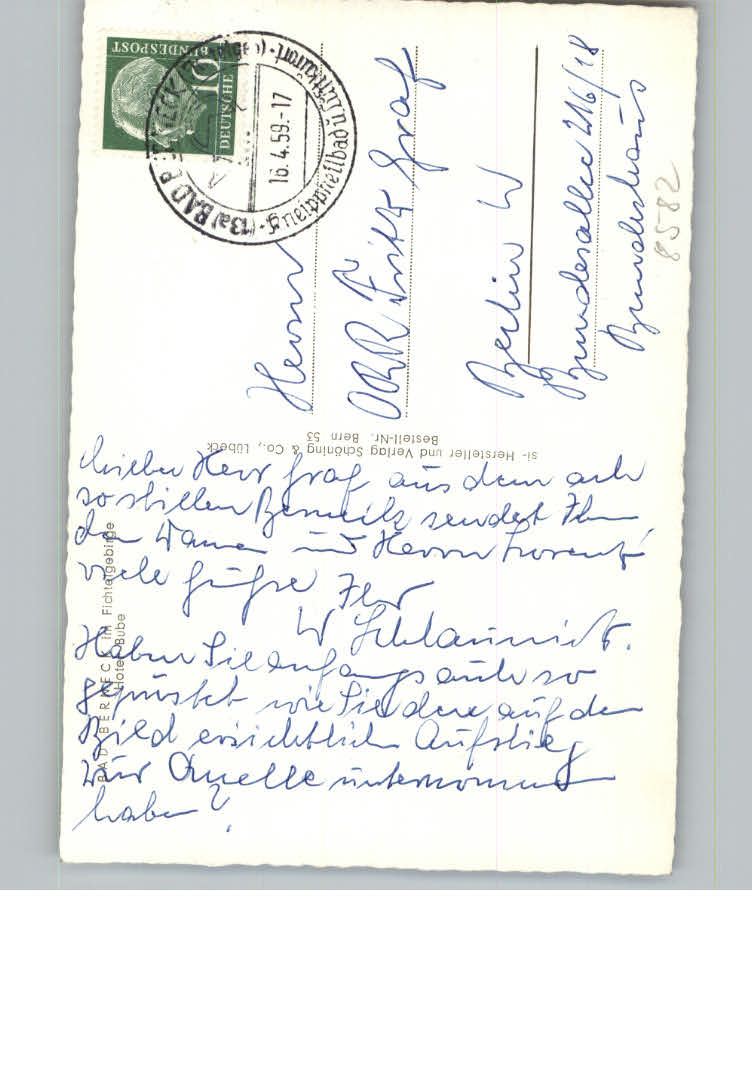 DEUTSCHE
BUNDESPOST
10
(13a) BAD BERNECK
Kneippheilbad u. Luftkurort
16.4.59.-17
Herrn
ORR Fritz Graf
Berlin W
Bundesallee 216/18
Bundeshaus
8582
si- Hersteller und Verlag Schöning & Co., Lübeck
Bestell-Nr. Bern 53
BAD BERNECK im Fichtelgebirge
Hotel Bube
Lieber Herr Graf aus dem ach
so stillen Berneck sendet Ihnen,
den Damen und Herrn
viele Grüße Ihr
W
Haben Sie anfangs auch so
gepustet wie Sie den auf dem
Bild ersichtlichen Aufstieg
zur Quelle unternommen
haben?